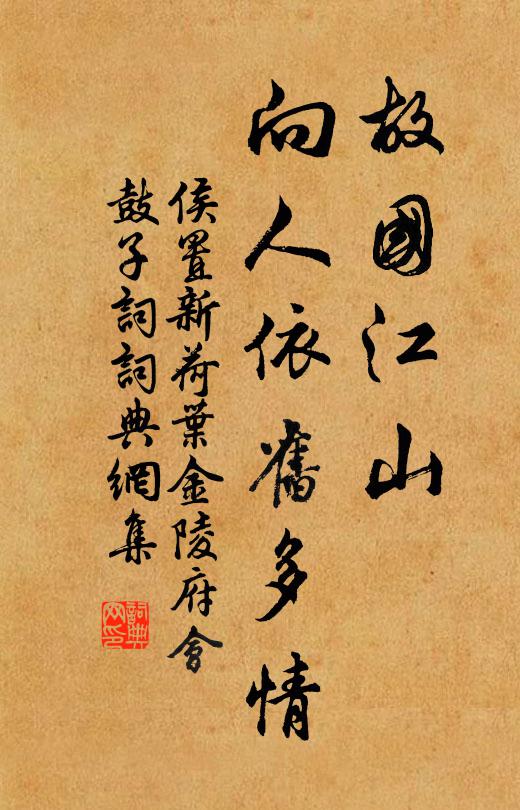 故國江山
向人依舊多情
侯置新荷葉金陵府會
鼓子詞詞典網集
詞典网印